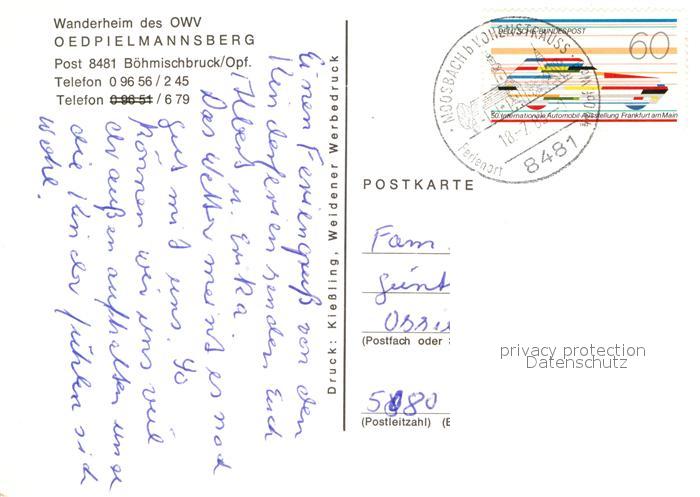 Wanderheim des OWV
OEDPIELMANNSBERG
Post 8481 Böhmischbruck/Opf.
Telefon 0 96 56 / 2 45
Telefon 0 96 51 / 6 79
Einen Feriengruß von den
Kinderferien senden Euch
Albert u. Erika.
Das Wetter meint es nod
gut mit uns. So
können wir uns viel
draußen aufhalten und
die Kinder fühlen sich
wohl.
Druck: Kießling, Weidener Werbedruck
DEUTSCHE BUNDESPOST
60
50. Internationale Automobil-Ausstellung Frankfurt am Main
MOOSBACH b VOHENSTRAUSS
18-7
Ferienort
8481
POSTKARTE
Fam.
Günt
Ossi
(Postfach oder
5080
(Postleitzahl) (E
privacy protection
Datenschutz